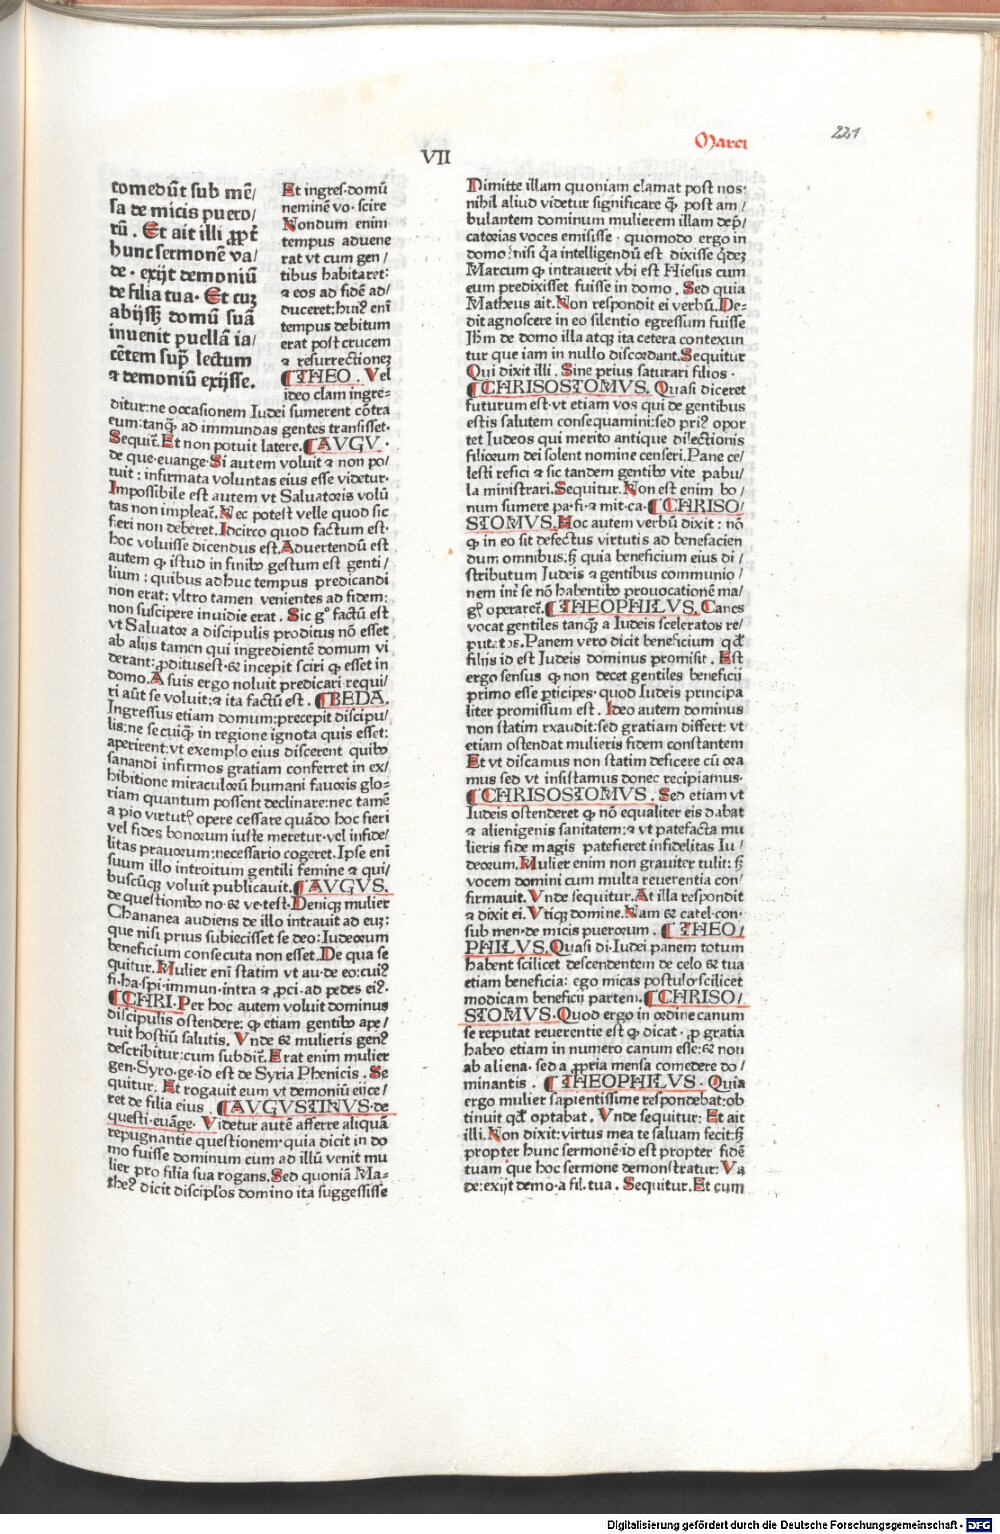 Marci
221
VII
comedũt sub mẽ/
sa de micis puero/
rũ . Et ait illi ꝓpt̃
hunc sermonẽ va/
de · exijt demoniũ
de filia tua · Et cuꝫ
abijssꝫ domũ suã
inuenit puellã ia/
cẽtem supͬ lectum
⁊ demoniũ exijsse.
Et ingres·domũ
neminẽ vo·scire
Nondum enim
tempus aduene
rat vt cum gen/
tibus habitaret:
⁊ eos ad fidẽ ad/
duceret:huiꝰ enĩ
tempus debitum
erat post crucem
⁊ resurrectioneꝫ
THEO. Vel
ideo clam ingre=
ditur:ne occasionem Iudei sumerent cõtra
eum:tanqꝫ̃ ad immundas gentes transisset·
Sequit̃. Et non potuit latere. AVGV·
de que·euange·Si autem voluit ⁊ non po/
tuit : infirmata voluntas eius esse videtur·
Impossibile est autem vt Saluatoris volũ
tas non impleat̃. Nec potest velle quod sic
fieri non deberet. Idcirco quod factum est·
hoc voluisse dicendus est. Aduertendũ est
autem ꝙ istud in finibꝰ gestum est genti/
lium : quibus adhuc tempus predicandi
non erat: vltro tamen venientes ad fidem:
non suscipere inuidie erat . Sic gͦ factũ est
vt Saluator a discipulis proditus nõ esset
ab alijs tamen qui ingredientẽ domum vi
derant: ꝓditus est·⁊ incepit sciri ꝙ esset in
domo. A suis ergo noluit predicari requi/
ri aũt se voluit:⁊ ita factũ est . BEDA.
Ingressus etiam domum:precepit discipu/
lis:ne se cuiqꝫ in regione ignota quis esset:
aperirent:vt exemplo eius discerent quibꝰ
sanandi infirmos gratiam conferret in ex/
hibitione miraculorũ humani fauoris glo=
riam quantum possent declinare:nec tamẽ
a pio virtutꝭ opere cessare quãdo hoc fieri
vel fides bonorum iuste meretur·vel infide/
litas prauorum:necessario cogeret. Ipse enĩ
suum illo introitum gentili femine ⁊ qui/
buscũqꝫ voluit publicauit. AVGVS.
de questionibꝰ no·⁊ ve·test. Deniqꝫ mulier
Chananea audiens de illo intrauit ad euꝫ:
que nisi prius subiecisset se deo: Iudeorum
beneficium consecuta non esset. De qua se
quitur. Mulier enĩ statim vt au·de eo:cuiꝰ
fi·ha·spi·immun·intra ⁊ ꝓci·ad pedes eiꝰ.
CHRI. Per hoc autem voluit dominus
discipulis ostendere: ꝙ etiam gentibꝰ ape/
ruit hostiũ salutis. Vnde ⁊ mulieris genꝰ
describitur:cum subdit̃. Erat enim mulier
gen·Syro·ge·id est de Syria Phenicis . Se
quitur. Et rogauit eum vt demoniũ eijce/
ret de filia eius . AVGVSTINVS·de
questi·euãge· Videtur autẽ afferre aliquã
repugnantie questionem·quia dicit in do
mo fuisse dominum cum ad illũ venit mu
lier pro filia sua rogans. Sed quoniã Ma=
theꝰ dicit discipl̃os domino ita suggessisse
Dimitte illam quoniam clamat post nos·
nihil aliud videtur significare qꝫ̃ post am/
bulantem dominum mulierem illam dep̃/
catorias voces emisisse · quomodo ergo in
domo: nisi q̃a intelligendũ est dixisse q̃deꝫ
Marcum ꝙ intrauerit vbi est Hiesus cum
eum predixisset fuisse in domo . Sed quia
Matheus ait. Non respondit ei verbũ. De=
dit agnoscere in eo silentio egressum fuisse
Ihm̃ de domo illa atqꝫ ita cetera contexun
tur que iam in nullo discordant. Sequitur
Qui dixit illi . Sine prius saturari filios ·
CHRISOSTOMVS. Quasi diceret
futurum est·vt etiam vos qui de gentibus
estis salutem consequamini:sed priꝰ opor
tet Iudeos qui merito antique dilectionis
filiorum dei solent nomine censeri. Pane ce/
lesti refici ⁊ sic tandem gentibꝰ vite pabu/
la ministrari. Sequitur. Non est enim bo/
num sumere pa·fi·⁊ mit·ca· CHRISO/
STOMVS. Hoc autem verbũ dixit : nõ
ꝙ in eo sit defectus virtutis ad benefacien
dum omnibus:sꝫ quia beneficium eius di/
stributum Iudeis ⁊ gentibus communio/
nem int̃ se nõ habentibꝰ prouocationẽ ma/
gꝭ operaret̃. THEOPHILVS. Canes
vocat gentiles tanqꝫ̃ a Iudeis sceleratos re/
putatos. Panem vero dicit beneficium qd̃
filijs id est Iudeis dominus promisit . Est
ergo sensus ꝙ non decet gentiles beneficij
primo esse ꝑticipes·quod Iudeis principa
liter promissum est . Ideo autem dominus
non statim exaudit:sed gratiam differt: vt
etiam ostendat mulieris fidem constantem
Et vt discamus non statim deficere cũ ora
mus sed vt insistamus donec recipiamus·
CHRISOSTOMVS . Sed etiam vt
Iudeis ostenderet ꝙ nõ equaliter eis dabat
⁊ alienigenis sanitatem:⁊ vt patefacta mu
lieris fide magis patefieret infidelitas Iu/
deorum. Mulier enim non grauiter tulit: sꝫ
vocem domini cum multa reuerentia con/
firmauit. Vnde sequitur. At illa respondit
⁊ dixit ei. Vtiqꝫ domine. Nam ⁊ catel·con·
sub men·de micis puerorum . THEO/
PHILVS. Quasi di·Iudei panem totum
habent scilicet descendentem de celo ⁊ tua
etiam beneficia: ego micas postulo·scilicet
modicam beneficij partem. CHRISO/
STOMVS. Quod ergo in ordine canum
se reputat reuerentie est ꝙ dicat · ꝓ gratia
habeo etiam in numero canum esse:⁊ non
ab aliena·sed a ꝓpria mensa comedere do/
minantis . THEOPHILVS · Quia
ergo mulier sapientissime respondebat:ob
tinuit qd̃ optabat . Vnde sequitur: Et ait
illi. Non dixit:virtus mea te saluam fecit:sꝫ
propter hunc sermonẽ·id est propter fidẽ
tuam que hoc sermone demonstratur: Va
de:exijt demo·a fil·tua . Sequitur. Et cum
Digitalisierung gefördert durch die Deutsche Forschungsgemeinschaft - DFG